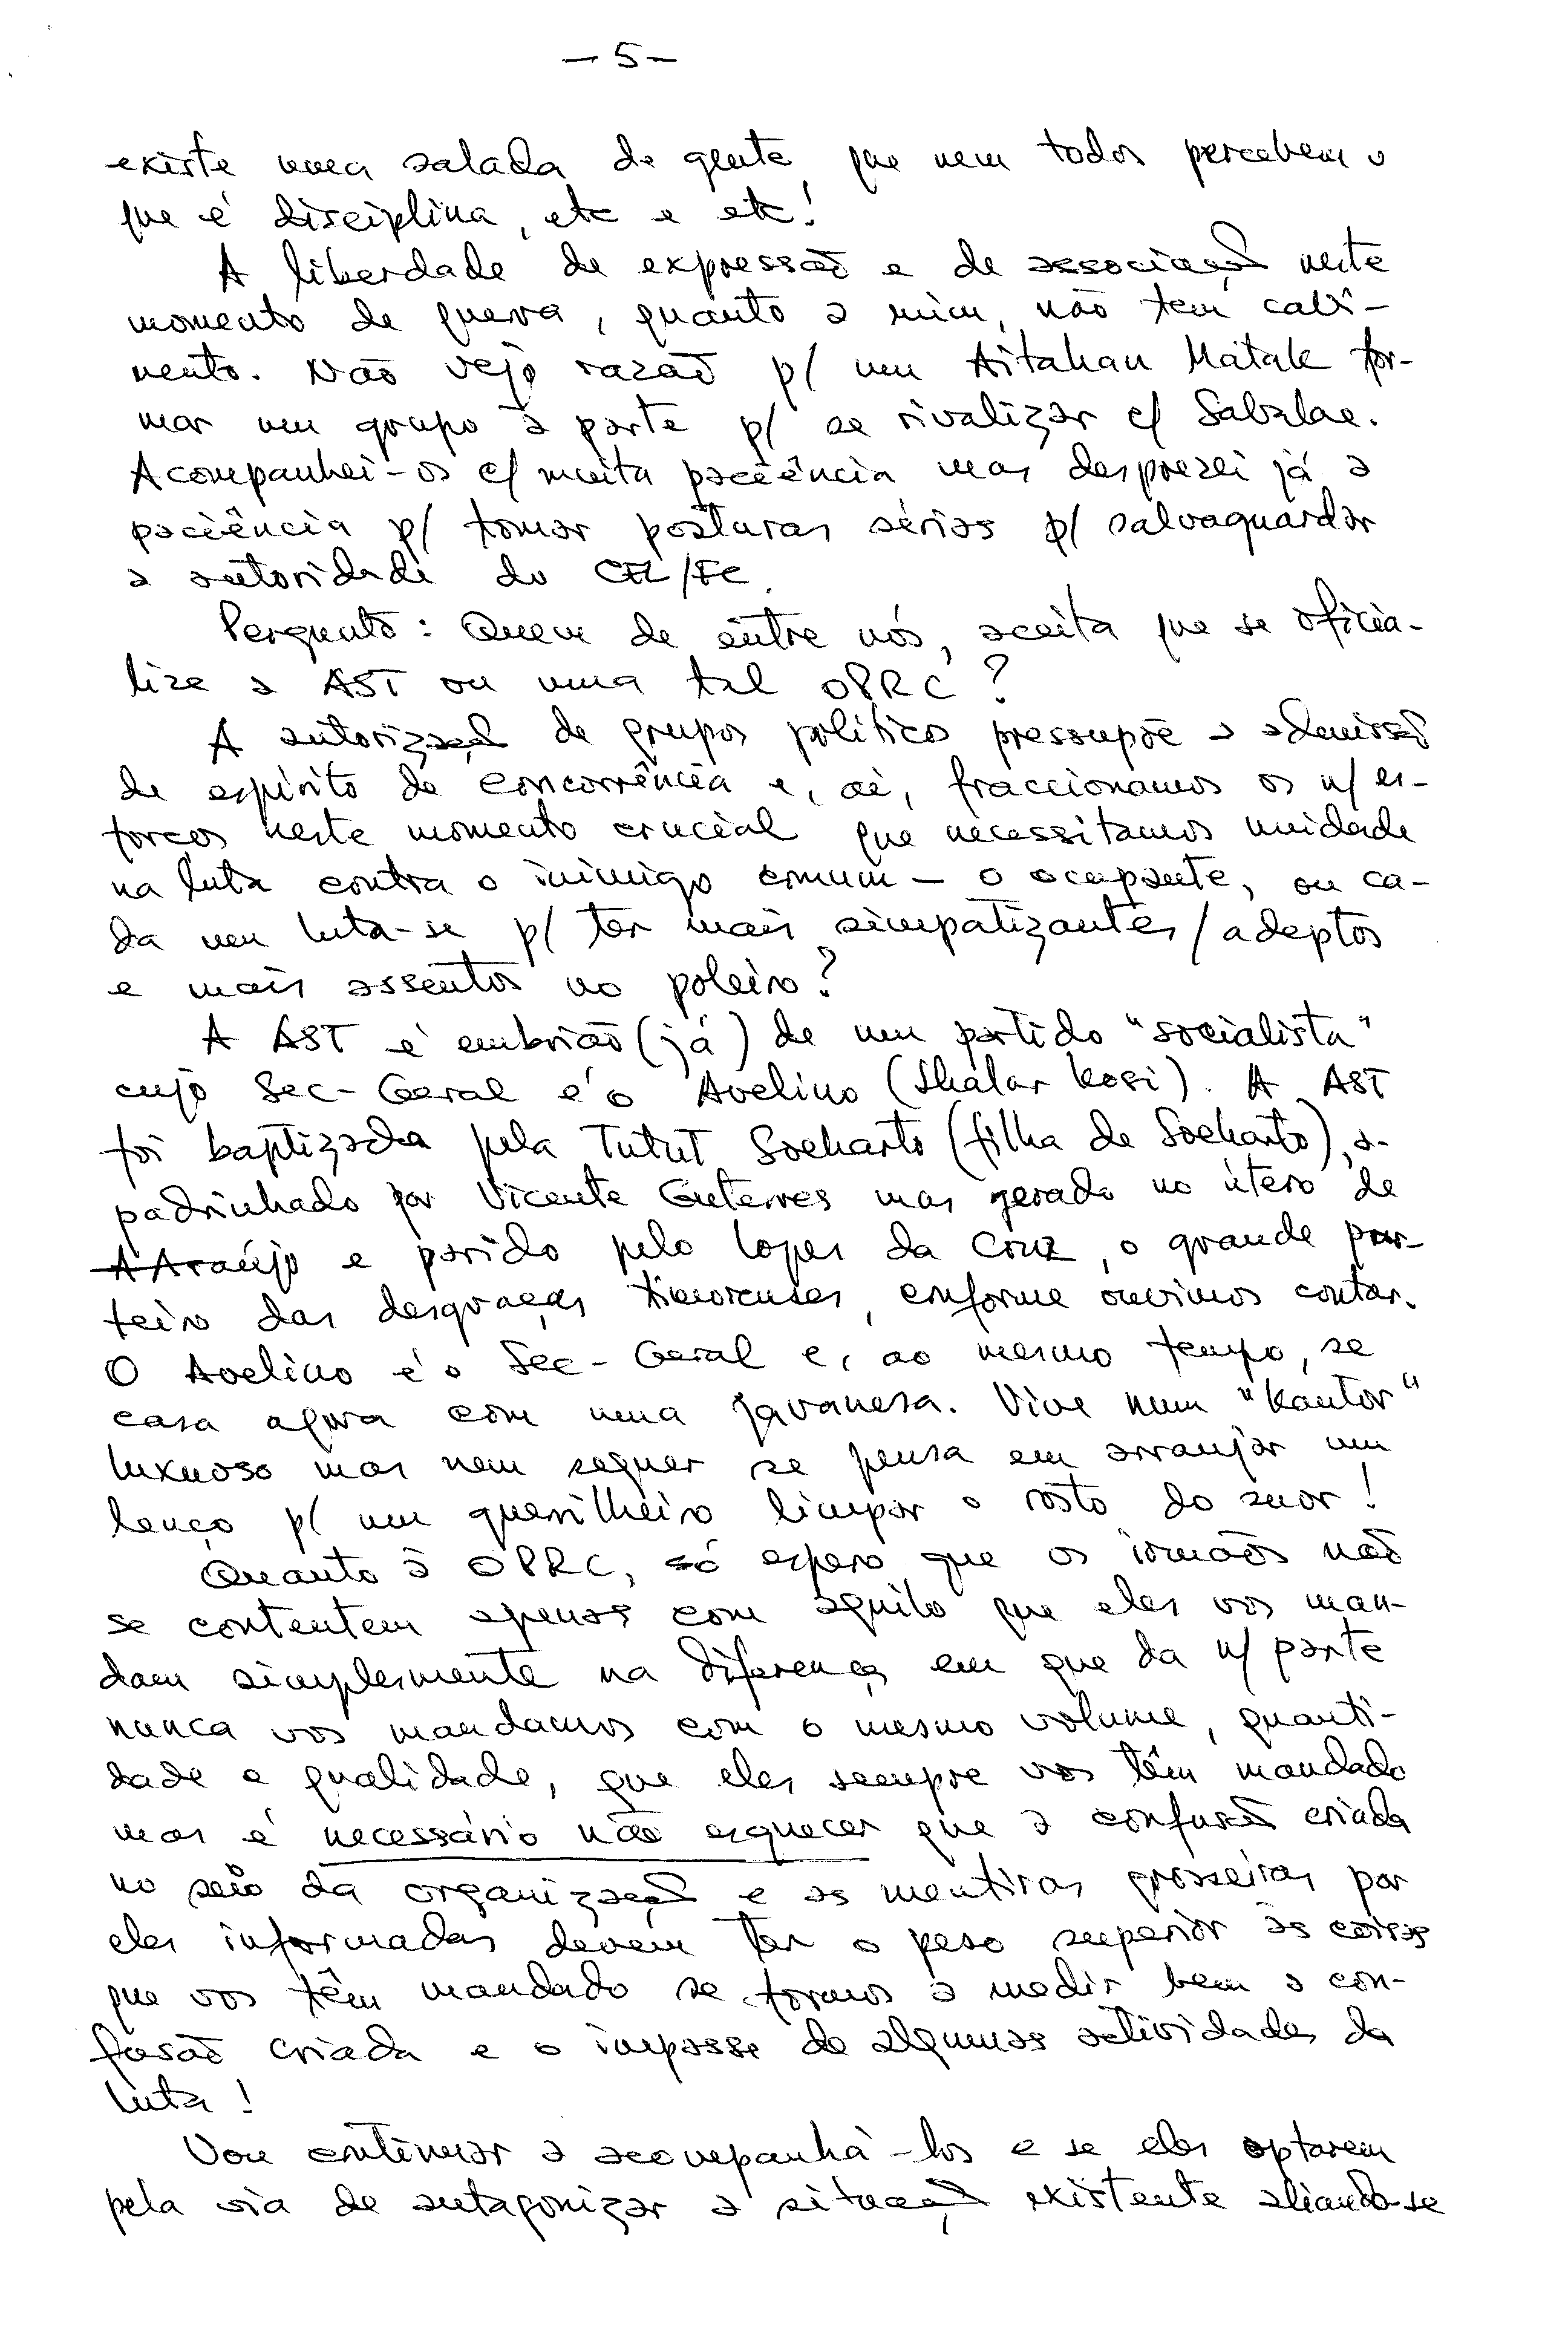 — 5 —
existe uma salada de gente, que nem todos percebem o
que é disciplina, etc e etc!
A liberdade de expressão e de associação neste
momento de guerra, quanto a mim, não tem cabi-
mento. Não vejo razão p/ um Aitahan Matak for-
mar um grupo à parte p/ se rivalizar c/ Sabalae.
Acompanhei-os c/ muita paciência mas desprezei já a
paciência p/ tomar posturas sérias p/ salvaguardar
a autoridade do CEL/FC.
Pergunto: Quem de entre nós, aceita que se oficia-
lize a AST ou uma tal OPRC?
A autorização de grupos políticos pressupõe a admissão
de espírito de concorrência e, aí, fraccionamos os n/ es-
forços neste momento crucial que necessitamos unidade
na luta contra o inimigo comum — o ocupante, ou ca-
da um luta-se p/ ter mais simpatizantes/adeptos
e mais assentos no poleiro?
A AST é embrião (já) de um partido "socialista"
cujo Sec-Geral é o Avelino (Shalar Kosi). A AST
foi baptizada pela Tutut Soeharto (filha de Soeharto), a-
padrinhado por Vicente Guterres mas gerado no útero de
A Araújo e parido pelo Lopes da Cruz, o grande par-
teiro das desgraças timorenses, conforme ouvimos contar.
O Avelino é o Sec-Geral e, ao mesmo tempo, se
casa agora com uma javanesa. Vive num "kantor"
luxuoso mas nem sequer se pensa em arranjar um
lenço p/ um guerrilheiro limpar o rosto do suor!
Quanto à OPRC, só espero que os irmãos não
se contentem apenas com aquilo que eles vos man-
dam simplesmente na diferença em que da n/ parte
nunca vos mandamos com o mesmo volume, quanti-
dade e qualidade, que eles sempre vos têm mandado
mas é necessário não esquecer que a confusão criada
no seio da organização e as mentiras grosseiras por
eles informadas devem ter o peso superior às coisas
que vos têm mandado se formos a medir bem a con-
fusão criada e o impasse de algumas actividades da
luta!
Vou continuar a acompanhá-los e se eles optarem
pela via de antagonizar a situação existente aliando-se